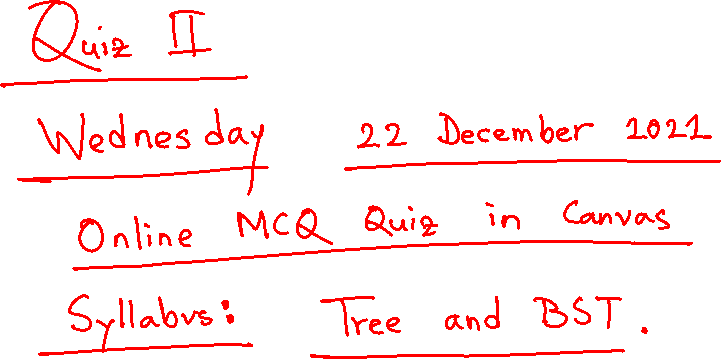 Quiz II
Wednesday 22 December 2021
Online MCQ Quiz in Canvas
Syllabus: Tree and BST.